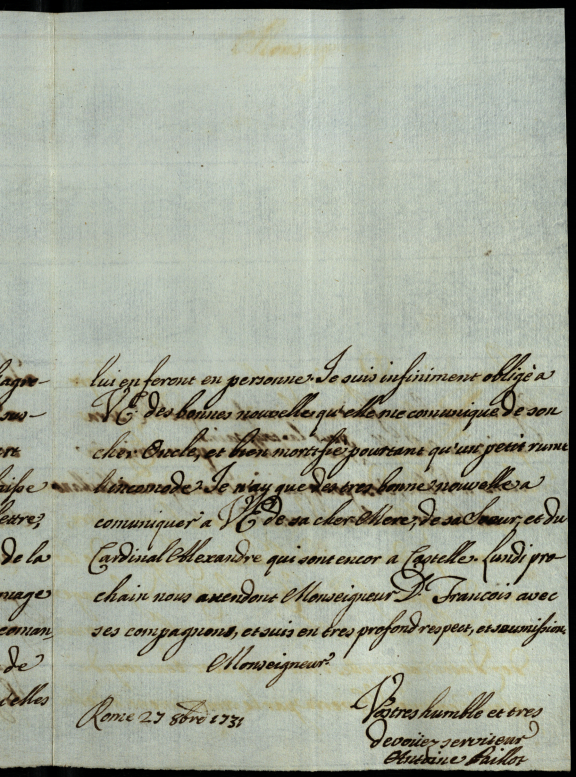 lui en feront en personne. Je suis infiniment obligè a
V. E. des bonnes nouvelle qu'elle me comunique de son
cher Oncle, et bien mortifie pourtant qu'un petit rume
l'incomode. Je n'ay que des tres bonne nouvelle a
comuniquer a V. E. de sa cher Mere, de sa Sœur, et du
Cardinal Alexandre qui sont encor a Castelle. Lundi pro-
chain nous attendont Monseigneur D. Francois avec
ses compagnons, et suis en tres profond respect, et soumission.
Monseigneur
Rome 27 8bre 1731
Vostres humble et tres
devoüez serviteur
Antoine Paillot